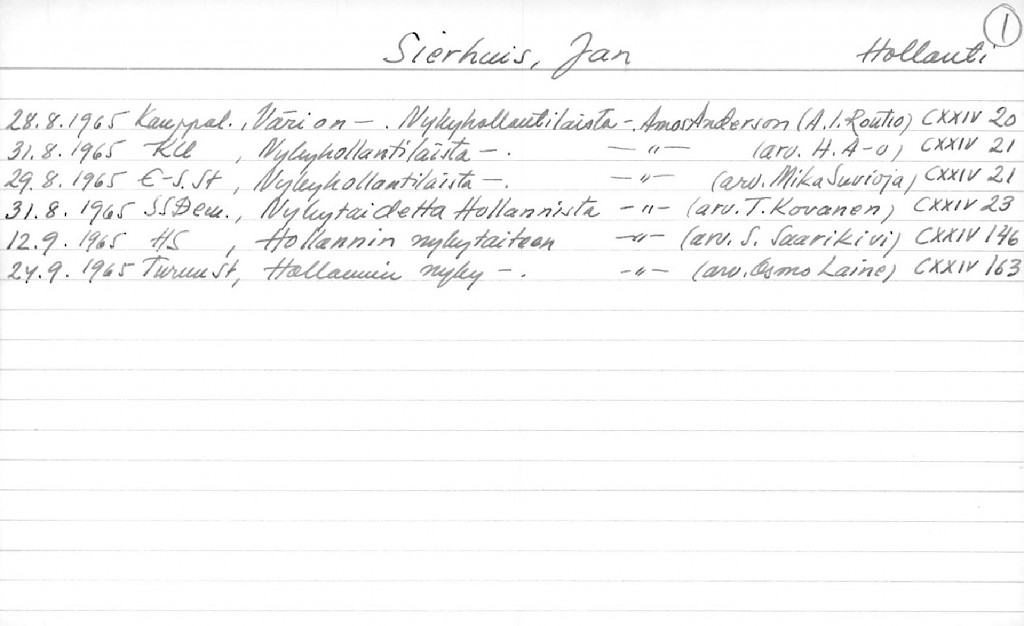 1
Sierhuis, Jan Hollanti
28.8.1965 Kauppal., Väri on —. Nykyhollantilaista —. Amos Anderson (A.I. Routio) CXXIV 20
31.8.1965 KU, Nykyhollantilaista —. —"— (arv. H.A-o) CXXIV 21
29.8.1965 E-S.St, Nykyhollantilaista —. —"— (arv. Mika Suvioja) CXXIV 21
31.8.1965 SSDem., Nykytaidetta Hollannista —"— (arv. T. Kovanen) CXXIV 23
12.9.1965 HS, Hollannin nykytaiteen —"— (arv. S. Saarikivi) CXXIV 146
24.9.1965 TurunSt, Hollannin nyky —. —"— (arv. Osmo Laine) CXXIV 163